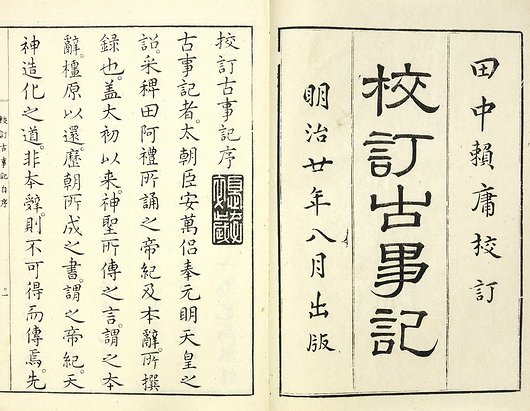 田中賴庸校訂
校訂古事記
明治廿年八月出版
校訂古事記序
古事記者。太朝臣安萬侶奉元明天皇之
詔。采稗田阿禮所誦之帝紀及本辭。所撰
録也。蓋大初以来。神聖所傳之言。謂之本
辭。橿原以還。歷朝所成之書。謂之帝紀。天
神造化之道。非本辭。則不可得而傳焉。先
校訂古事記自序
一